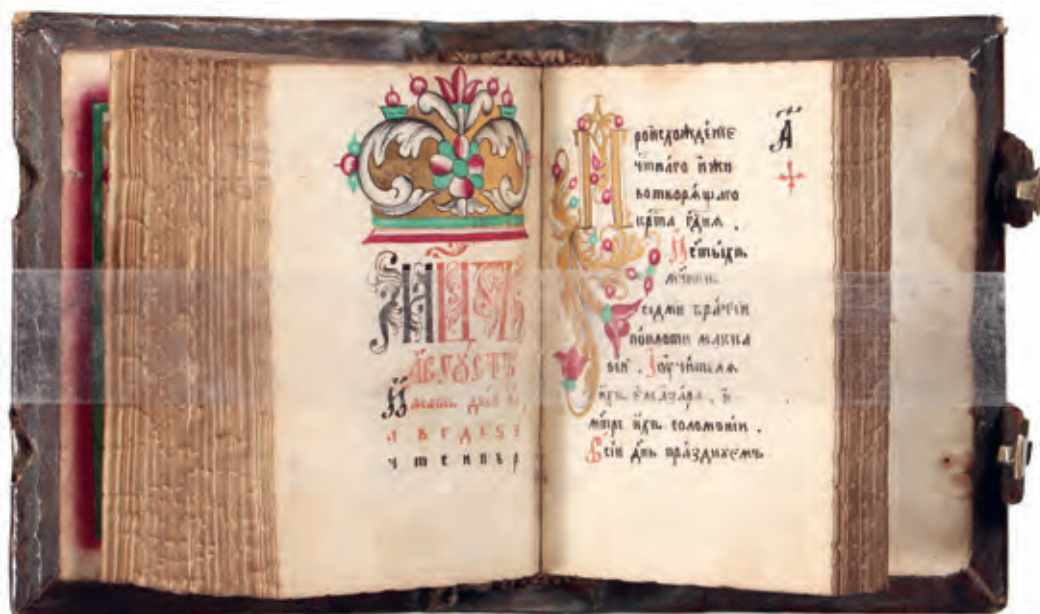 мцⷭ҇ъ
а҆́вгꙋстъ
и҆́мать дні́й
а в г д е ѕ з
ч т с н п в р
а҃
Происхожде́нїе
чⷭ҇тна́го и҆ жи
вотворѧ́щаго
крⷭ҇та̀ гдⷭ҇нѧ .
И ст҃ы́хъ
мч҃нкъ
седмѝ бра́тїи
поплоти макка
веи҆ . И ᲂу҆чи́телѧ
и҆́хъ є҆леаза́ра . и҆
мт҃ре и҆́хъ соломонїи .
Всїи дн҃ь пра́зднꙋемъ